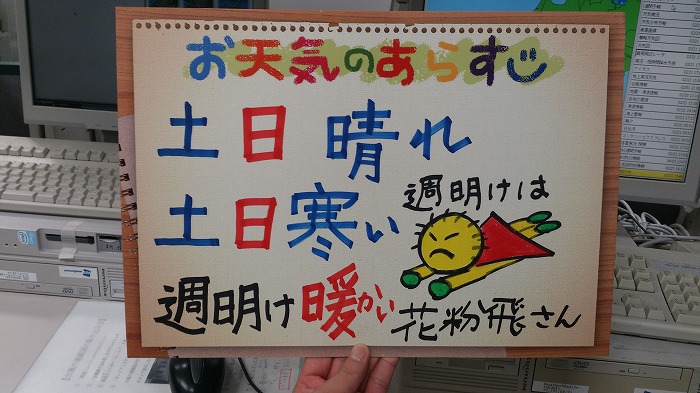 お天気のあらすじ
土日 晴れ
土日寒い
週明け暖かい
週明けは
花粉飛さん